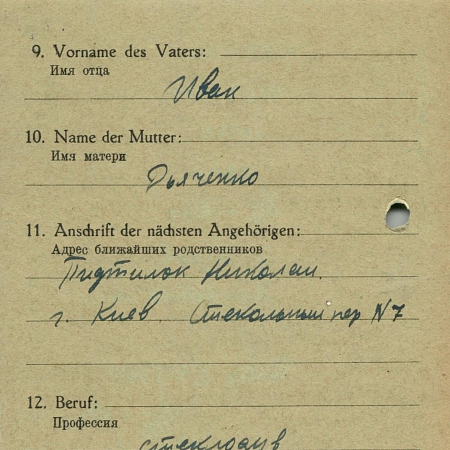 9. Vorname des Vaters:
Имя отца
Иван
10. Name der Mutter:
Имя матери
Дьяченко
11. Anschrift der nächsten Angehörigen:
Адрес ближайших родственников
Николай.
г. Киев. Стекольный пер N 7
12. Beruf:
Профессия